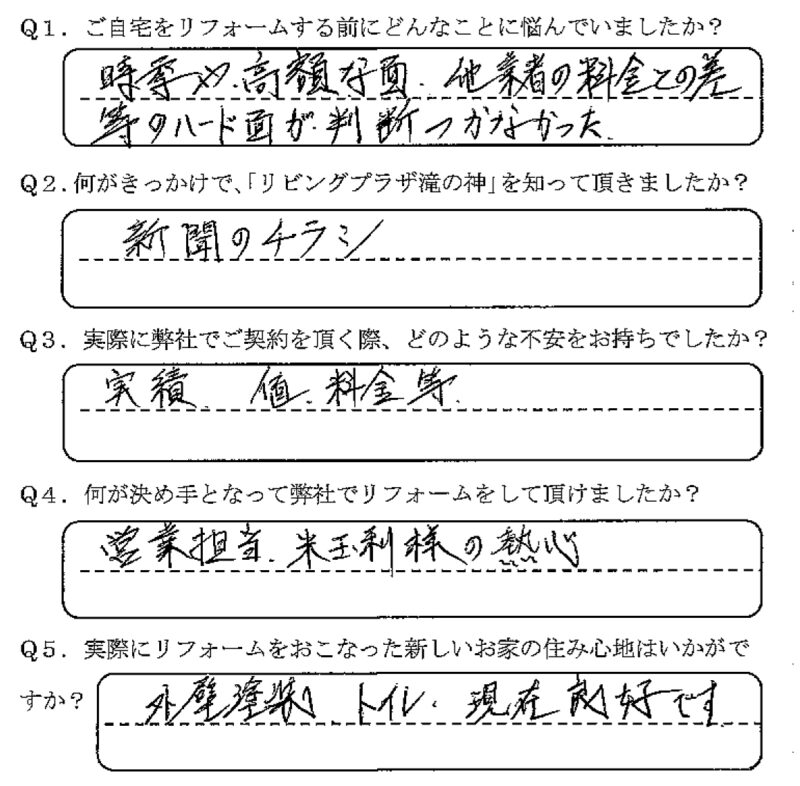 Q1. ご自宅をリフォームする前にどんなことに悩んでいましたか？
時季や、高額な面、他業者の料金との差
等のハード面が判断つかなかった。
Q2. 何がきっかけで、「リビングプラザ滝の神」を知って頂きましたか？
新聞のチラシ
Q3. 実際に弊社でご契約を頂く際、どのような不安をお持ちでしたか？
実績、値、料金等、
Q4. 何が決め手となって弊社でリフォームをして頂けましたか？
営業担当、米玉利様の熱心
Q5. 実際にリフォームをおこなった新しいお家の住み心地はいかがで
すか？
外壁塗装、トイレ、現在良好です